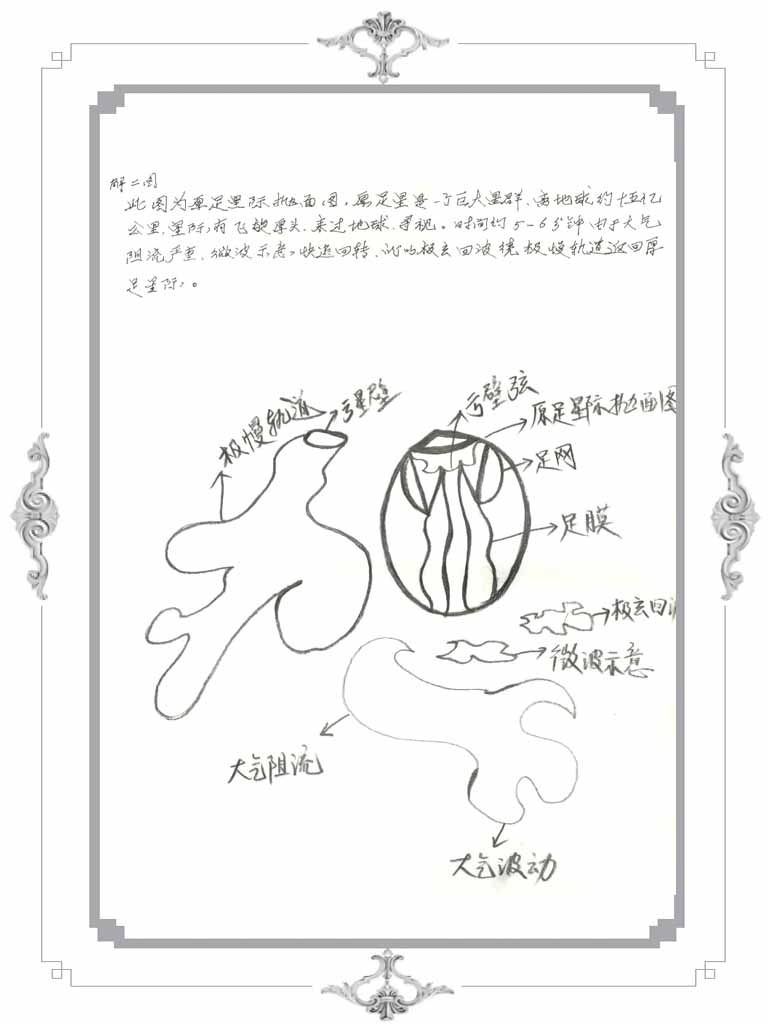 解二图
此图为原足星际抛面图,原足星是一个巨大星群,离地球约十五亿
公里,星际有飞旋浮头,来过地球,寻视。时间约5-6分钟由于大气
阻流严重,微波示意,快速回转,此时极玄回波绕极慢轨道返回原
足星际。
极慢轨道
亏星壁
亏壁弦
原足星际抛面图
足网
足膜
极玄回
微波示意
大气阻流
大气波动